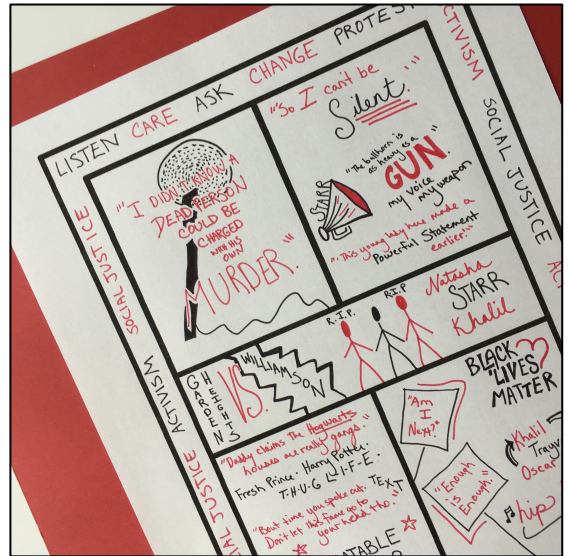 LISTEN CARE ASK CHANGE PROTEST
ACTIVISM
SOCIAL JUSTICE
SOCIAL JUSTICE
ACTIVISM
SOCIAL JUSTICE
"I DIDN'T KNOW A
DEAD PERSON
COULD BE
CHARGED
WITH HIS
OWN
MURDER."
"So I can't be
Silent."
"The bullhorn is
as heavy as a
GUN."
my voice
my weapon
STARR
"This young lady here made a
Powerful Statement
earlier."
R.I.P
R.I.P
Natasha
STARR
Khalil
GARDEN
HEIGHTS
VS.
WILLIAMSON
"Daddy claims the Hogwarts
houses are really gangs."
Fresh Prince · Harry Potter ·
T·H·U·G L·I·F·E·
TEXT
"Bout time you spoke out.
Don't let this fame go to
your head tho."
BLACK
LIVES
MATTER
"Am
I
Next?"
"Enough
is
Enough."
Khalil
Oscar
hip